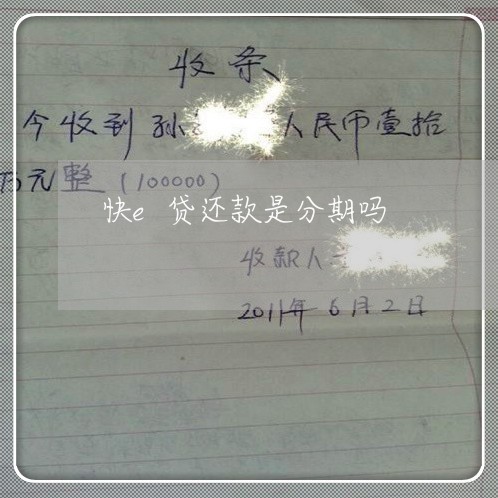 收条
今收到孙 人民币壹拾
万元整(100000)
快e 贷还款是分期吗
收款人
2011年6月2日